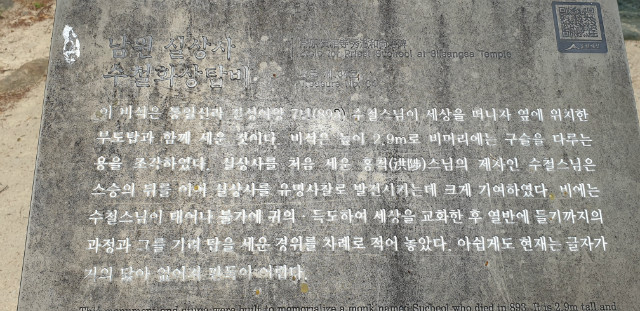 남원 실상사
수철화상탑비
이 비석은 통일신라 진성여왕 7년(893) 수철스님이 세상을 떠나자 옆에 위치한
부도탑과 함께 세운 것이다. 비석은 높이 2.9m로 비머리에는 구슬을 다루는
용을 조각하였다. 실상사를 처음 세운 홍척(洪陟)스님의 제자인 수철스님은
스승의 뒤를 이어 실상사를 유명사찰로 발전시키는데 크게 기여하였다. 비에는
수철스님이 태어나 불가에 귀의 · 득도하여 세상을 교화한 후 열반에 들기까지의
과정과 그를 기려 탑을 세운 경위를 차례로 적어 놓았다. 아쉽게도 현재는 글자가
거의 닳아 없어져 판독이 어렵다.
Priest Sucheol at Silsangsa Temple
This monument and stupa were built to memorialize a monk named Sucheol who died in 893. It is 2.9m tall and